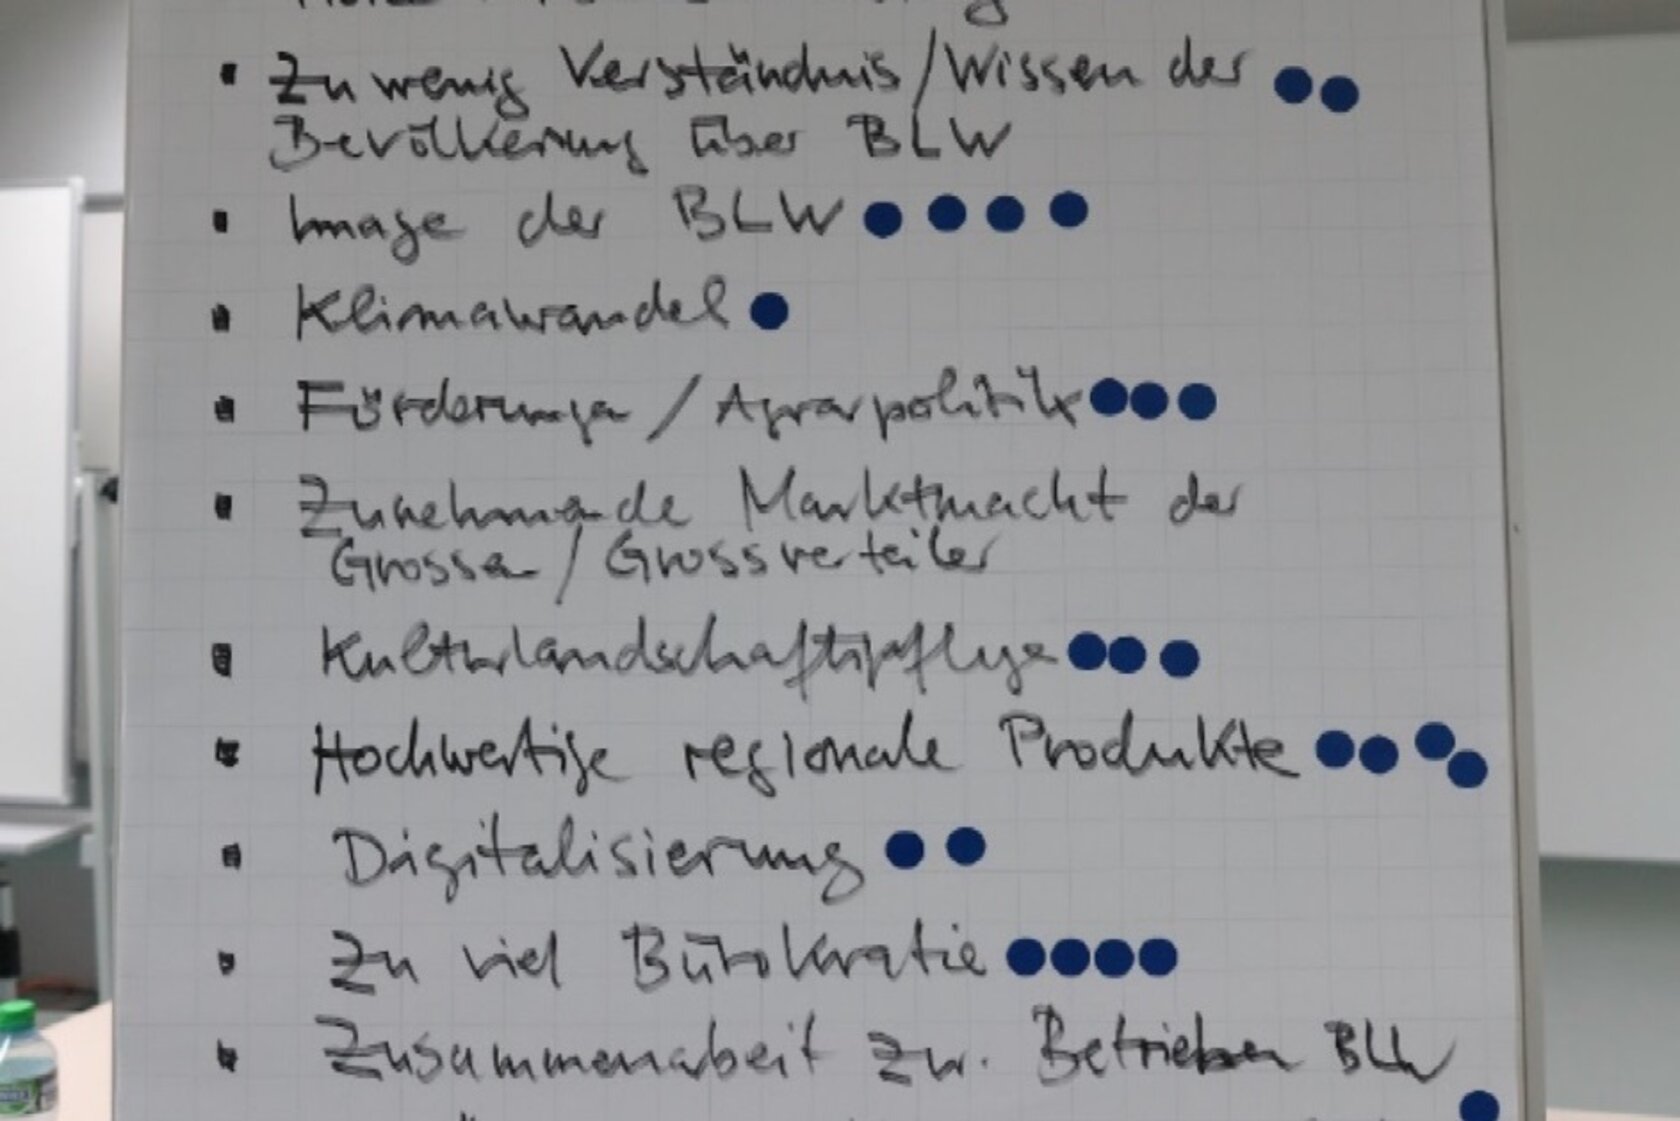 ▪ Zu wenig Verständnis/Wissen der
Bevölkerung über BLW
▪ Image der BLW
▪ Klimawandel
▪ Förderungen / Agrarpolitik
▪ Zunehmende Marktmacht der
Grossen / Grossverteiler
▪ Kulturlandschaftspflege
▪ Hochwertige regionale Produkte
▪ Digitalisierung
▪ Zu viel Bürokratie
▪ Zusammenarbeit zw. Betrieben BLW